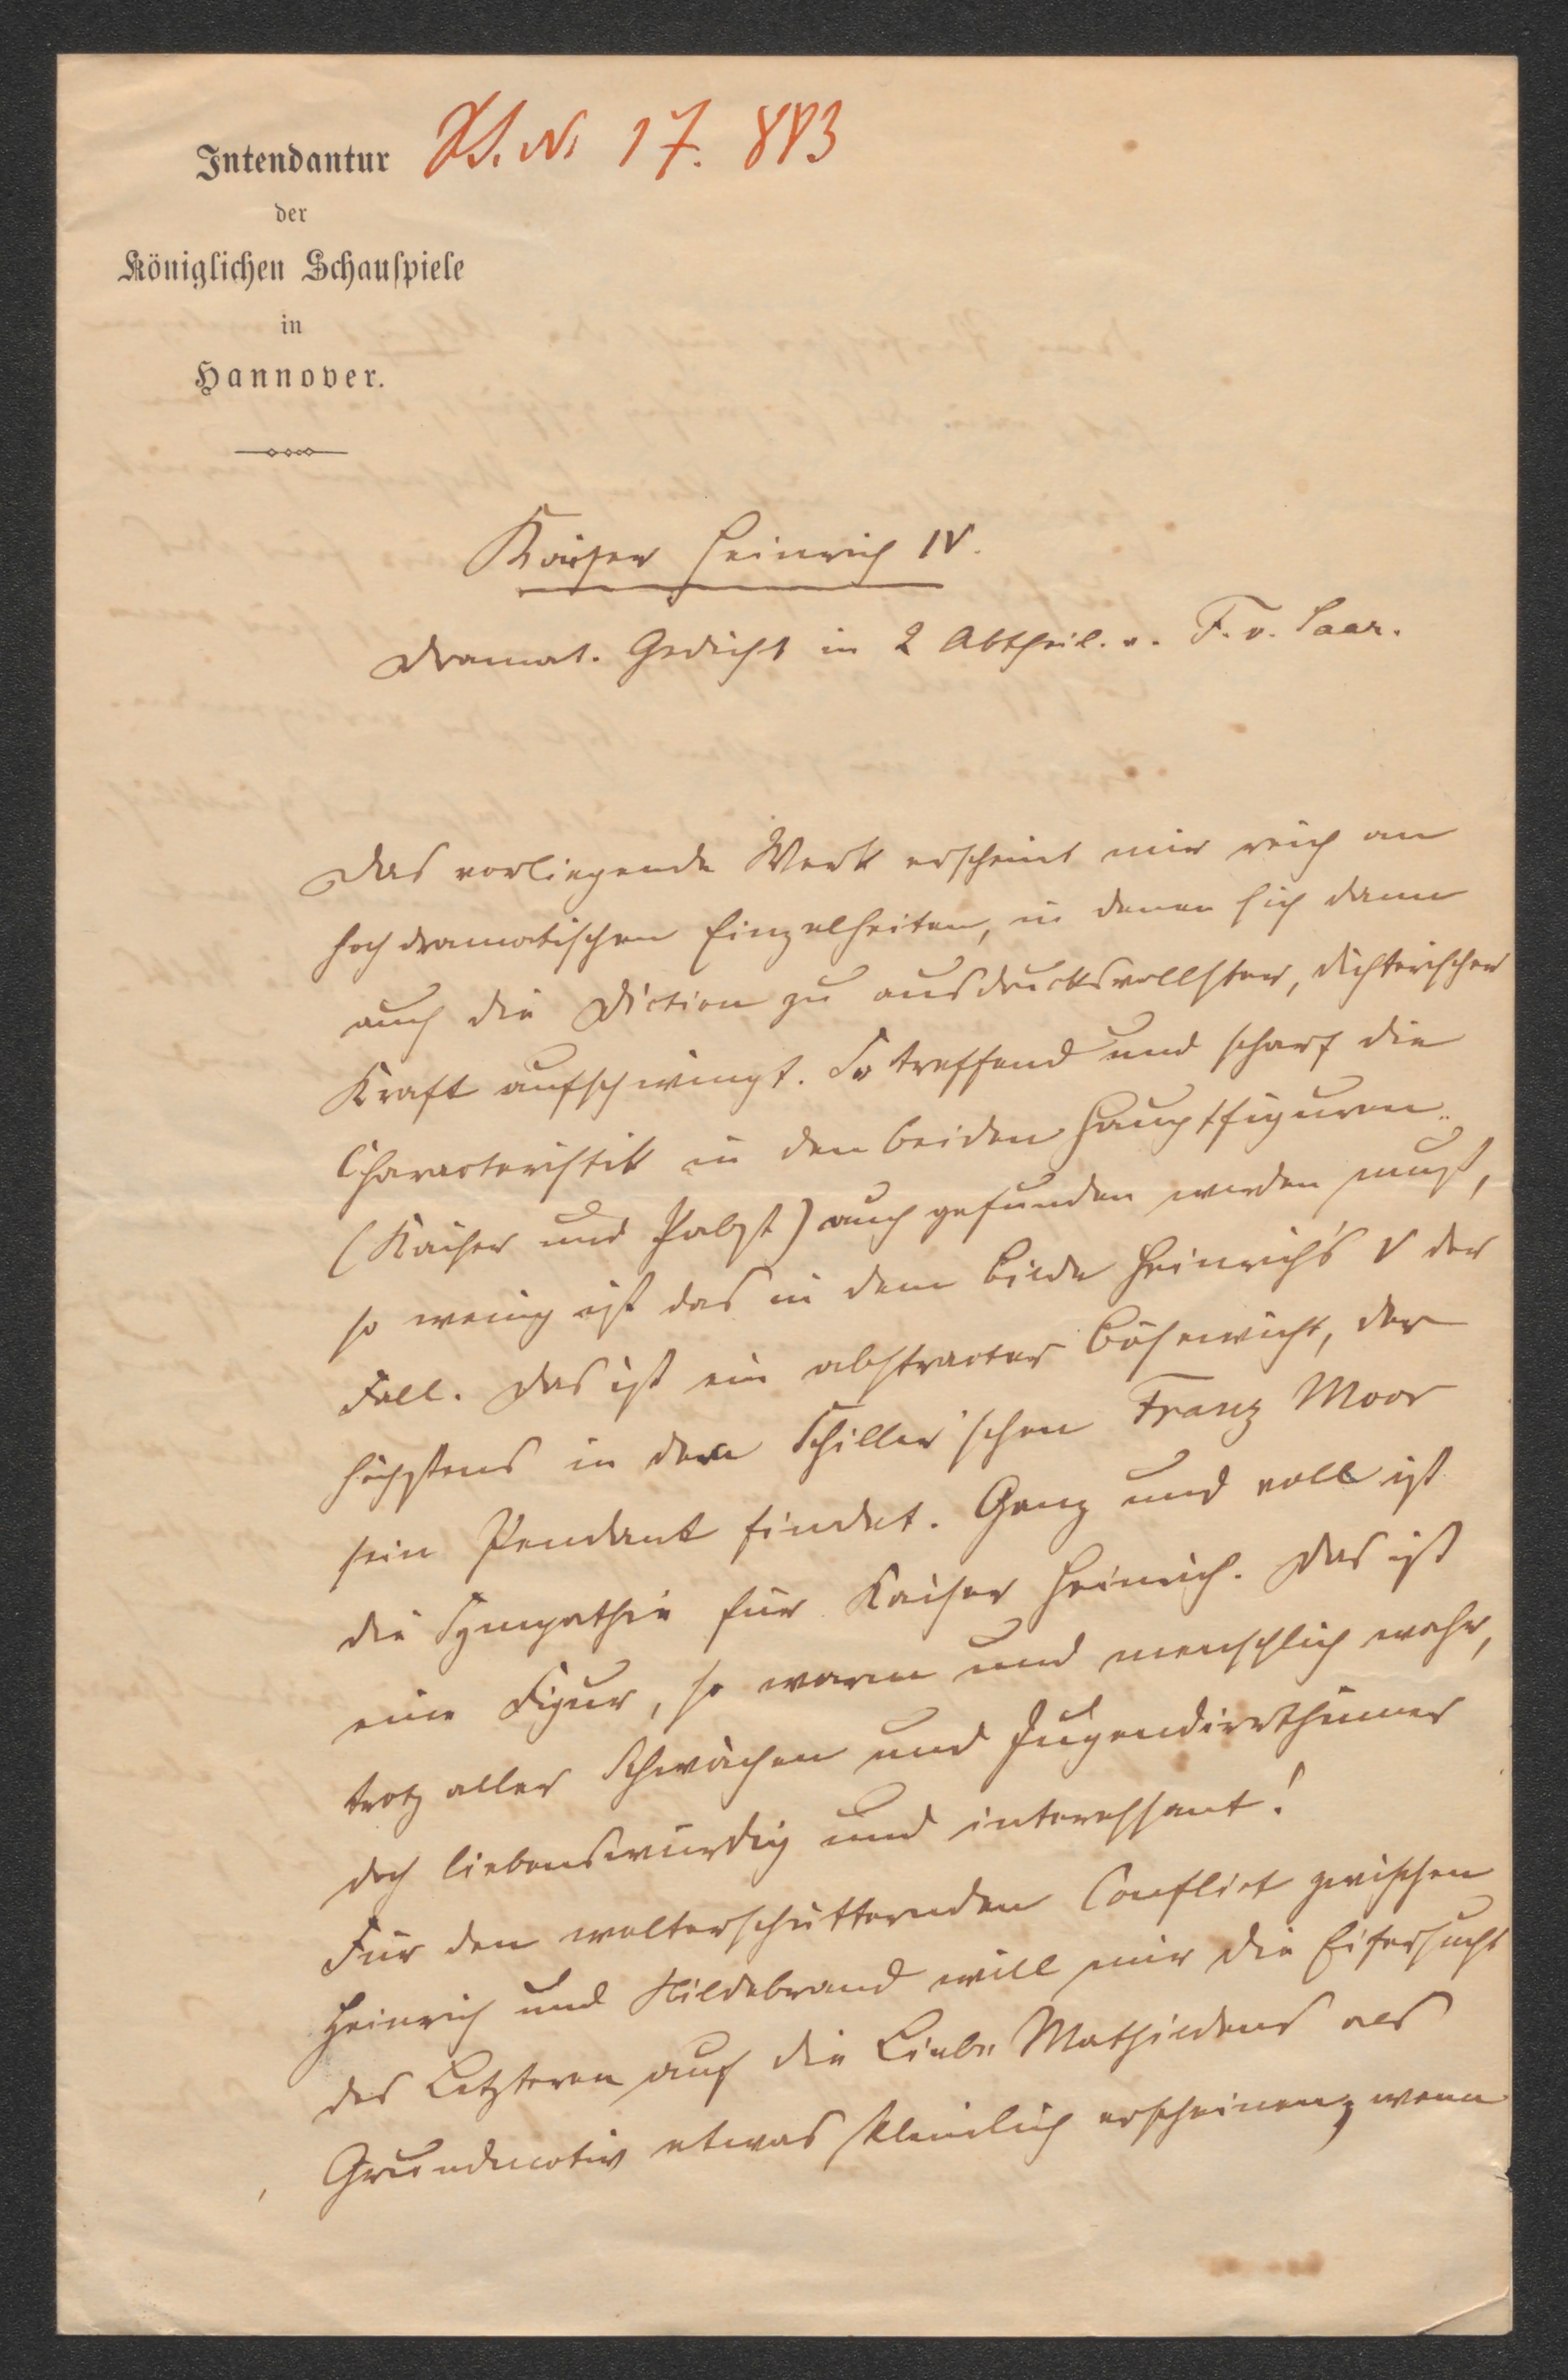 Intendantur
der
Königlichen Schauspiele
in
Hannover.
H.I.N. 17.883
Kaiser Heinrich IV.
Dramat. Gedicht in 2 Abtheil. v. F. v. Saar.
Das vorliegende Werk erscheint mir reich an
hochdramatischen Einzelheiten, in denen sich dann
auch die Diction zu ausdrucksvollster, dichterischer
Kraft aufschwingt. So treffend und scharf die
Characteristik in den beiden Hauptfiguren
(Kaiser und Pabst) auch gefunden werden muß,
so wenig ist das in dem Bilde Heinrich's V der
Fall. Das ist ein abstracter Bösewicht, der
höchstens in dem Schiller'schen Franz Moor
sein Pendant findet. Ganz und voll ist
die Sympathie für Kaiser Heinrich. Das ist
eine Figur, so warm und menschlich wahr,
trotz aller Schwächen und Jugendirrthümer
doch liebenswürdig und interessant!
Für den welterschütternden Conflict zwischen
Heinrich und Hildebrand will mir die Eifersucht
des Letzteren auf die Liebe Mathildens als
Grundmotiv etwas kleinlich erscheinen, wenn